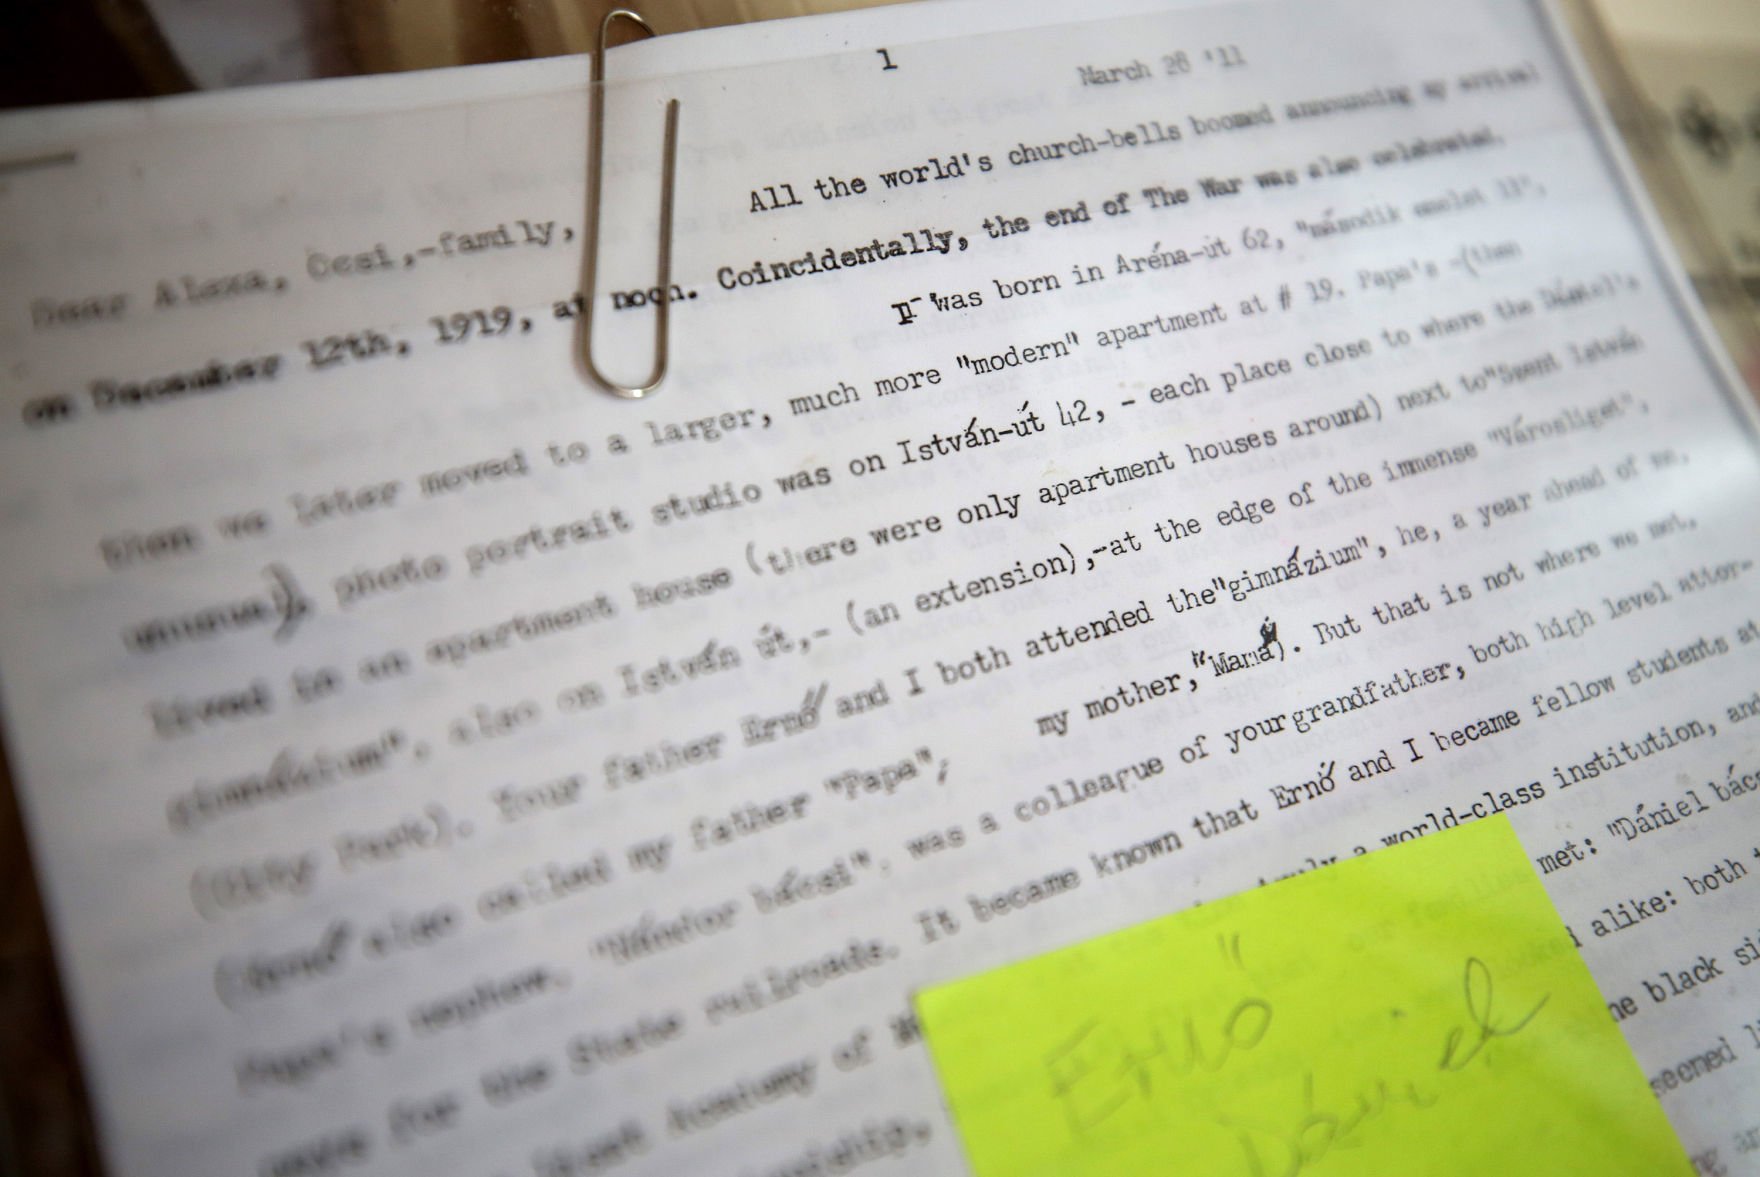 1
March 28 '11
Dear Alexa, Cesi,-family, All the world's church-bells boomed announcing my arrival
on December 12th, 1919, at noon. Coincidentally, the end of The War was also celebrated.
I was born in Aréna-út 62, "második emelet 13",
then we later moved to a larger, much more "modern" apartment at # 19. Papa's -(then
unusual), photo portrait studio was on István-út 42, - each place close to where the Dániel's
lived in an apartment house (there were only apartment houses around) next to"Szent István
gimnázium", also on István út,- (an extension),-at the edge of the immense "Városliget",
(City Park). Your father Ernő and I both attended the"gimnázium", he, a year ahead of me,
also called my father "Papa", my mother,"Mamá). But that is not where we met.
Papa's nephew, "Nándor bácsi", was a colleague of your grandfather, both high level attor-
for the State railroads. It became known that Ernő and I became fellow students at
Academy of a world-class institution, and
met: "Dániel
alike: both
black
seemed
Ernő
Dániel